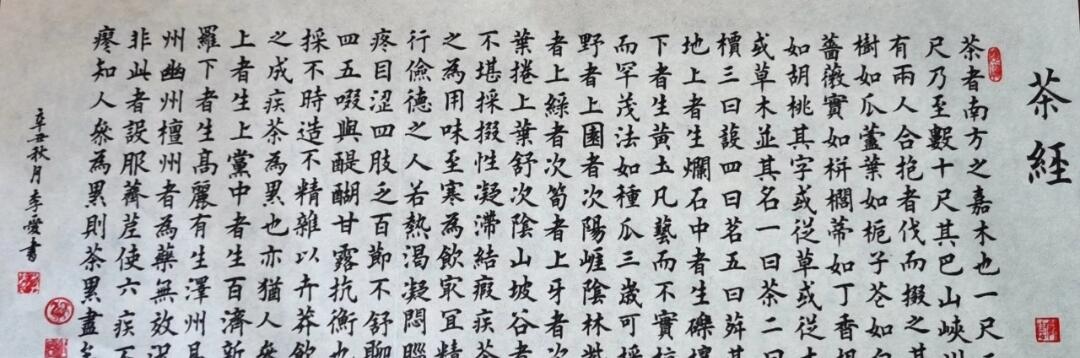 茶經
茶者南方之嘉木也一尺
尺乃至數十尺其巴山峽
有兩人合抱者伐而掇之其
樹如瓜蘆葉如梔子花如
薔薇實如栟櫚蒂如丁香根
如胡桃其字或從草或從木
或草木並其名一曰茶二曰
檟三曰蔎四曰茗五曰荈其
地上者生爛石中者生礫壤
下者生黃土凡藝而不實植
而罕茂法如種瓜三歲可採
野者上園者次陽崖陰林紫
者上綠者次筍者上牙者次
葉捲上葉舒次陰山坡谷者
不堪採掇性凝滯結瘕疾茶
之為用味至寒為飲冣宜精
行儉德之人若熱渴凝悶腦
疼目澀四肢乏百節不舒聊
四五啜與醍醐甘露抗衡也
採不時造不精雜以卉莽飲
之成疾茶為累也亦猶人參
上者生上黨中者生百濟新
羅下者生高麗有生澤州易
州幽州檀州者為藥無效況
非此者設服薺苨使六疾不
瘳知人參為累則茶累盡矣
辛丑秋月李愛書